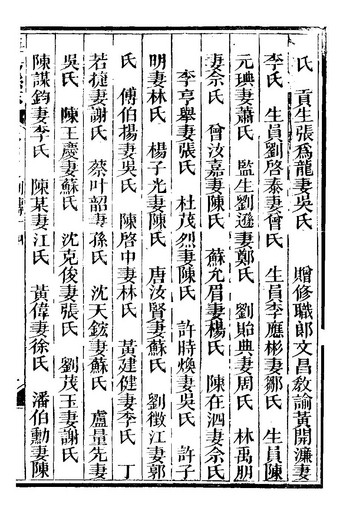 氏　貢生張爲龍妻吳氏　贈修職郎文昌敎諭黃開濂妻
李氏　生員劉啓泰妻曾氏　生員李應彬妻鄒氏　生員陳
元琠妻蕭氏　監生劉遜妻鄭氏　劉貽典妻周氏　林禹朋
妻佘氏　曾汝嘉妻陳氏　蘇允眉妻楊氏　陳在泗妻佘氏
李亨舉妻張氏　杜茂烈妻陳氏　許時煥妻吳氏　許子
明妻林氏　楊子光妻陳氏　唐汝賢妻蘇氏　劉徵江妻郭
氏　傅伯揚妻吳氏　陳啓中妻林氏　黃建健妻李氏　丁
若㨗妻謝氏　蔡叶韶妻孫氏　沈天鉉妻蘇氏　盧量先妻
吳氏　陳王慶妻蘇氏　沈克俊妻張氏　劉茂玉妻謝氏
陳謀鈞妻李氏　陳某妻江氏　黃偉妻徐氏　潘伯勳妻陳